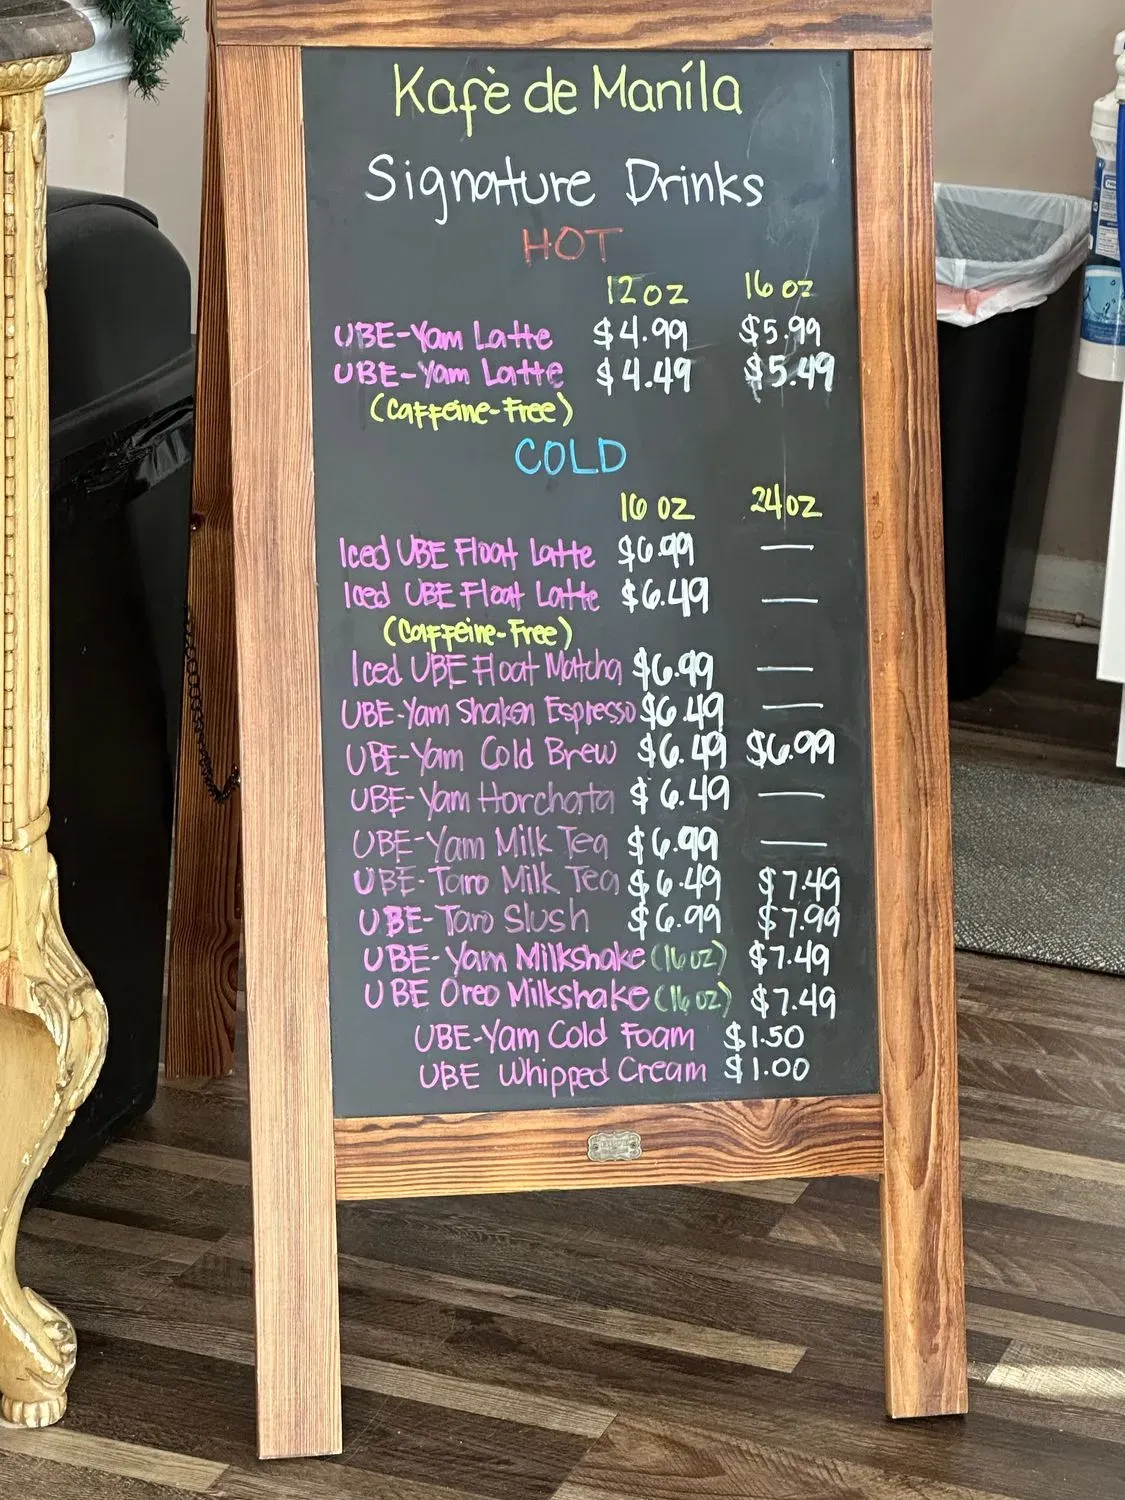 Kafè de Maníla
Signature Drinks
HOT
12 oz 16 oz
UBE-Yam Latte $4.99 $5.99
UBE-Yam Latte $4.49 $5.49
(Caffeine-Free)
COLD
16 oz 24 oz
Iced UBE Float Latte $6.99 —
Iced UBE Float Latte $6.49 —
(Caffeine-Free)
Iced UBE Float Matcha $6.99 —
UBE-Yam Shaken Espresso $6.49 —
UBE-Yam Cold Brew $6.49 $6.99
UBE-Yam Horchata $6.49 —
UBE-Yam Milk Tea $6.99 —
UBE-Taro Milk Tea $6.49 $7.49
UBE-Taro Slush $6.99 $7.99
UBE-Yam Milkshake (16 oz) $7.49
UBE Oreo Milkshake (16 oz) $7.49
UBE-Yam Cold Foam $1.50
UBE Whipped Cream $1.00